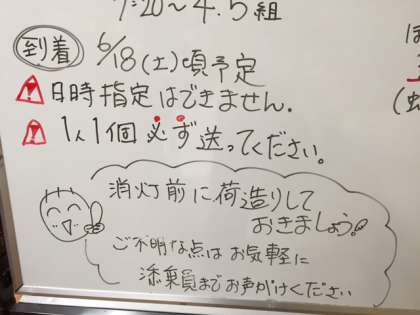 7:20～4.5組
到着 6/18(土)頃予定
日時指定はできません.
1人1個 必ず送ってください。
消灯前に荷造りして
おきましょう!
ご不明な点はお気軽に
添乗員までお声がけください